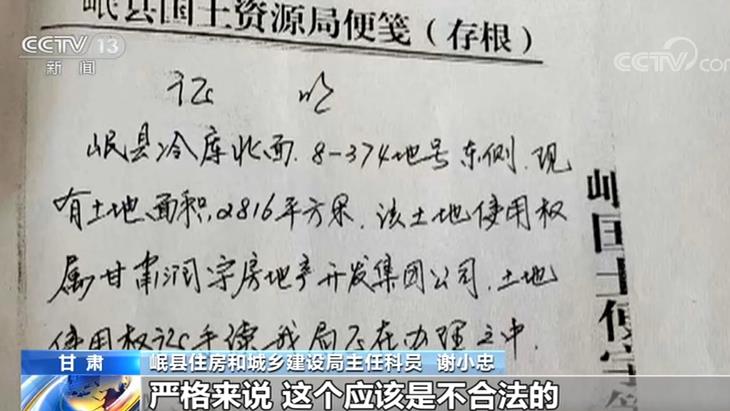 CCTV 13
新闻
CCTV.com
岷县国土资源局便笺（存根）
证 明
岷县冷库北面，8-374地号东侧，现
有土地面积，2816平方米，该土地使用权
属甘肃润宇房地产开发集团公司，土地
使用权证手续我局正在办理之中。
岷国土便字
甘肃
岷县住房和城乡建设局主任科员 谢小忠
严格来说 这个应该是不合法的